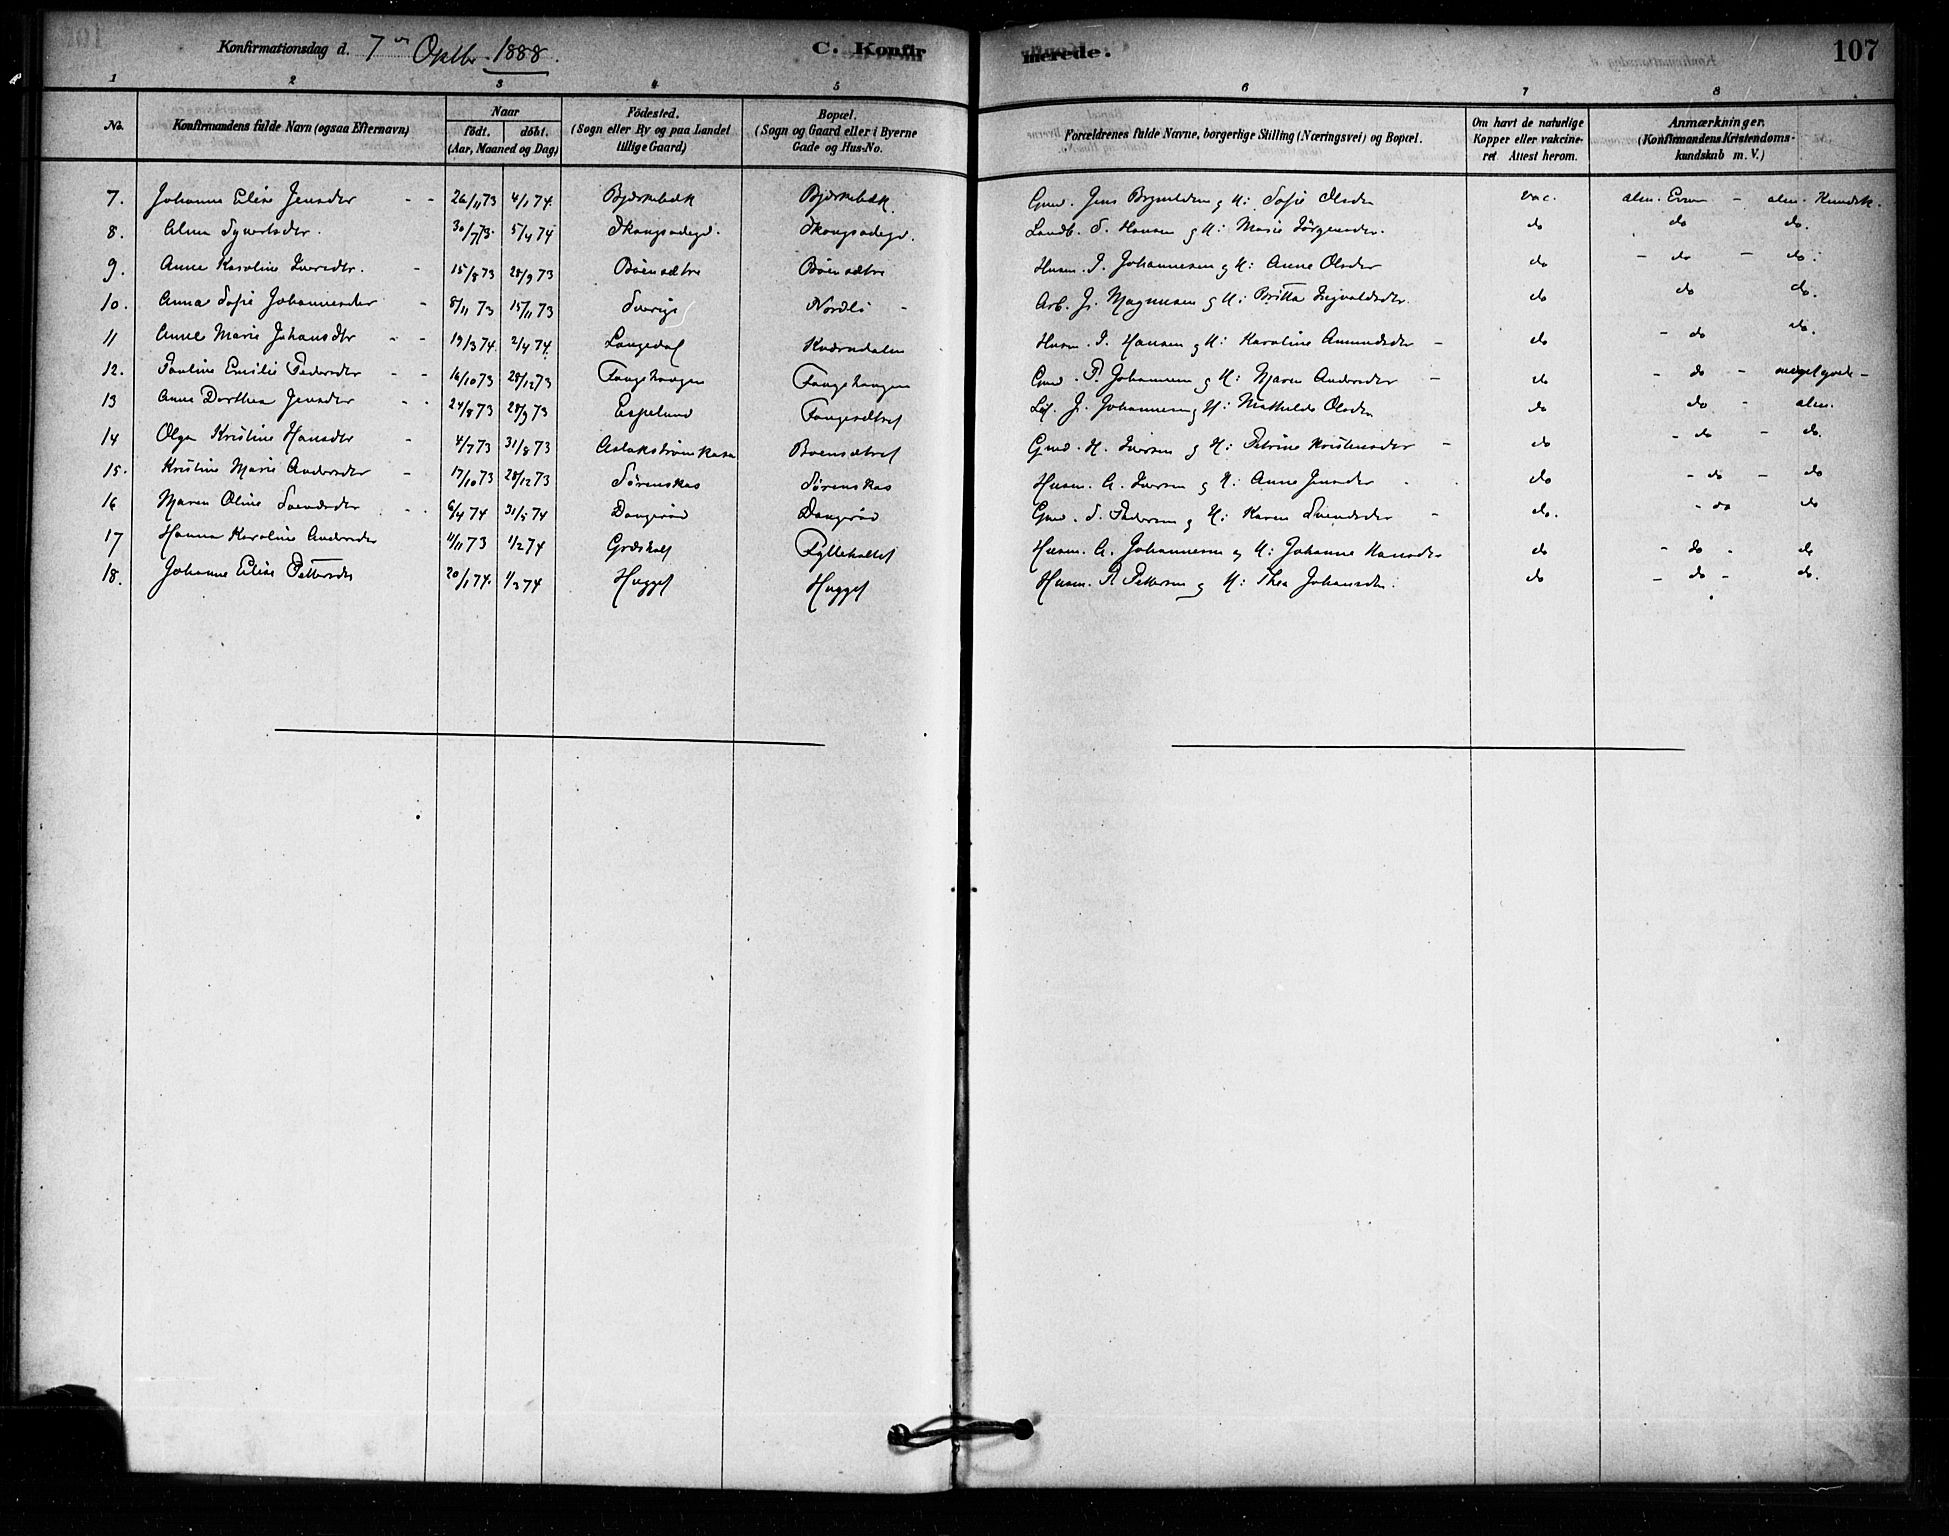 Konfirmationsdag d. 7de Oktbr. 1888.
C. Konfirmerede.
107
1 2 3 4 5 6 7 8
No. Konfirmandens fulde Navn (ogsaa Efternavn) Naar født. døbt. (Aar, Maaned og Dag) Fødested. (Sogn eller By og paa Landet tillige Gaard) Bopæl. (Sogn og Gaard eller i Byerne Gade og Hus-No. Forældrenes fulde Navne, borgerlige Stilling (Næringsvei) og Bopæl. Om havt de naturlige Kopper eller vakcineret. Attest herom. Anmærkninger. (Konfirmandens Kristendomskundskab m. V.)
7. Johanne Elise Jensdtr 26/11 73 4/1 74. Bjørkebæk Bjørkebæk. Gmd. Jens Brynildsen og H: Sofie Olsdtr vac. alm. Evner - alm. Kundsk.
8. Alma Syvertsdtr. 30/7 73. 5/4 74 Skaugsødegd. Skaugsødegd. Landb. S. Hansen og H: Marie Jørgensdtr. do do do.
9. Anne Karoline Iversdtr. 15/8 73 28/9 73 Bøensætre Bøensætre Husm. I. Johannesen og H: Anne Olsdtr do - do - do.
10. Anna Sofie Johannesdtr 8/11 73 15/11 73 Sverige Nordli Arb. J. Magnusen og H: Britta Ingvaldsdtr. do do do.
11 Anne Marie Johansdtr 19/3 74. 2/4 74. Langedal Kværndalen Husm. J. Hansen og H: Karoline Amundsdtr do - do do.
12. Pauline Emilie Pedersdtr 16/10 73 28/12 73 Fangshaugen Fangshaugen Gmd. P. Johannesen og H: Maren Andersdtr do - do - meget gode -
13 Anne Dorthea Jensdtr 24/8 73 28/9 73 Espelund Fangesætret Lej. J. Johannesen og H: Mathilde Olsdtr do do - alm.
14 Olga Kristine Hansdtr 4/7 73 31/8 73 Aslakstrømkasa Boensætret Gmd. H. Iversen og H: Petrine Kristensdtr do - do - do.
15. Kristine Marie Andersdtr 17/10 73 28/12 73 Sørenskas Sørenskas Husm. A. Iversen og H: Anne Jensdtr do - do - do
16 Maren Oline Svendsdtr 6/4 74 31/5 74 Dangerød Dangerød Gmd. S. Pedersen og H: Karen Svendsdtr do. - do do
17 Hanna Karoline Andersdtr 11/11 73 1/2 74 Græshalt Fyllehaltet Husm. A. Johannesen og H: Johanne Hansdtr do - do - do
18. Johanne Elise Pettersdtr 20/1 74. 1/3 74 Hugget Hugget Husm. A Pettersen og H: Thea Johansdtr. do - do - do.